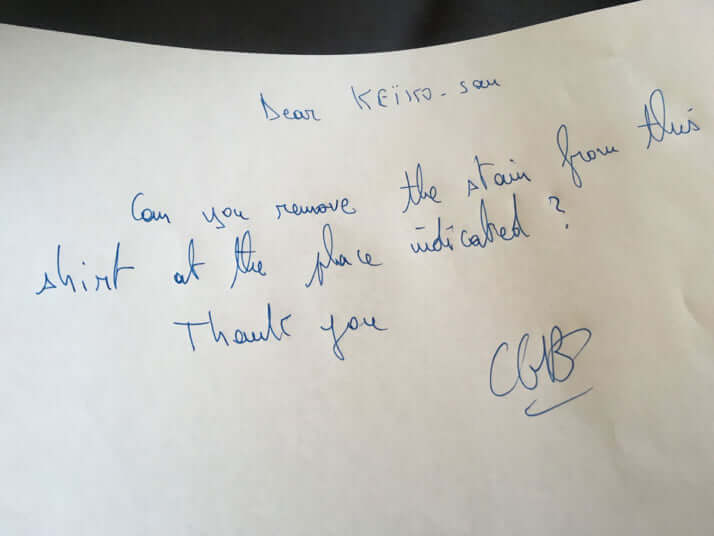 Dear KEÏKO-san
Can you remove the stain from this
shirt at the place indicated ?
Thank you
CGB